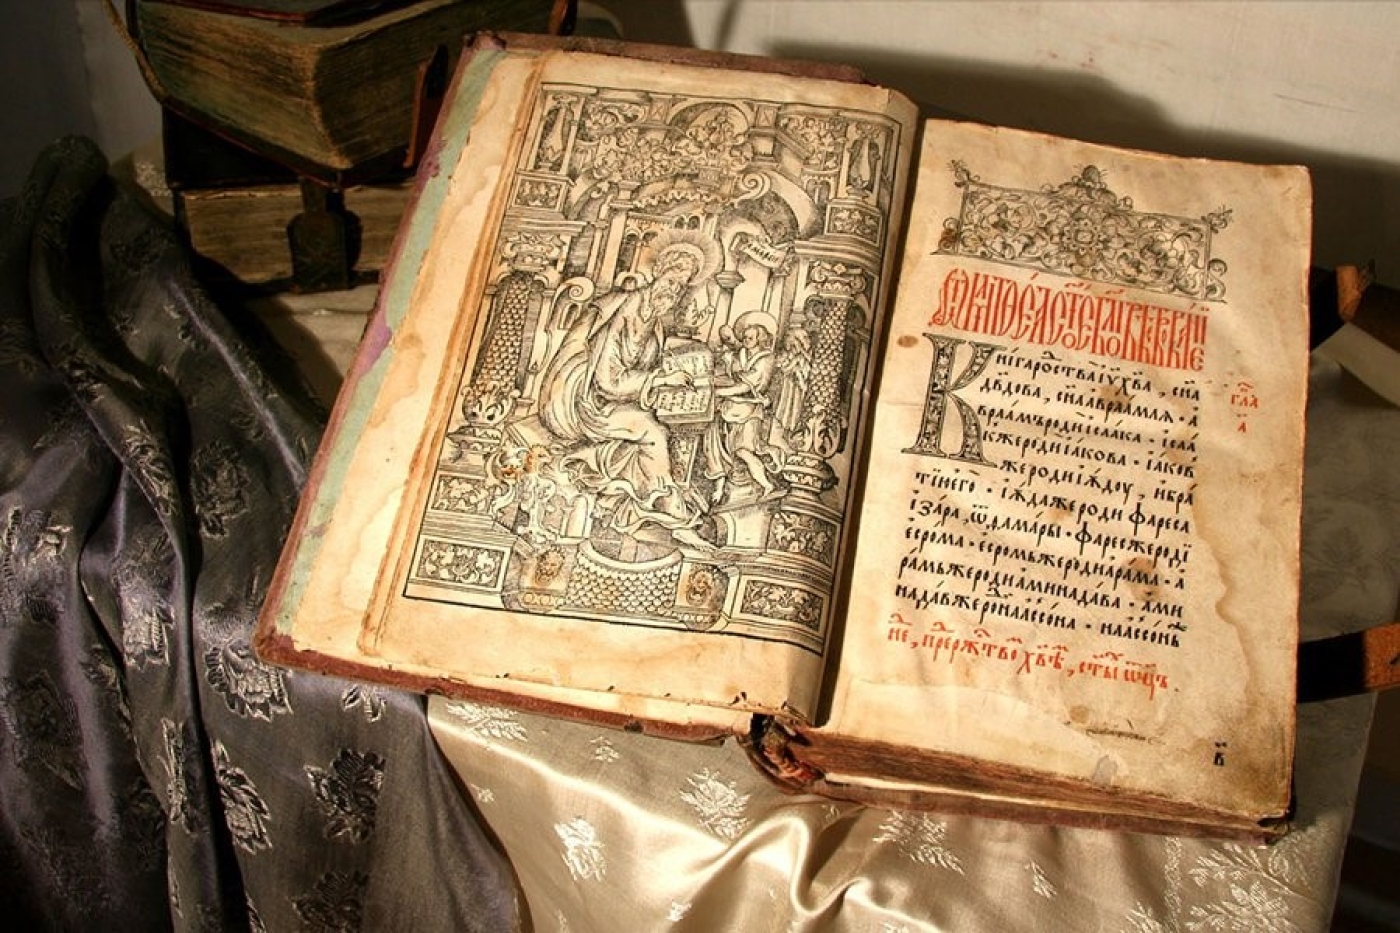 Кні́га ро́ства і҆у҃ хв҃а , сн҃а
дв҃дова , сн҃а авраамлѧ · а
враамъ роди ісаака · ісаа
къ же роди іакова · іаков
же роди іюдоу , и бра
тїю его · іюда же роди фареса
і зара , ѿ фамары · фаресъ же роди
есрома · есромъ же роди арама · а
рамъ же роди аминадава · ами
надавъ же роди наассона · наассонъ
не , пре рж҃тво хв҃ѣ , ст҃ы ѿц҃ъ .
гла
а
в